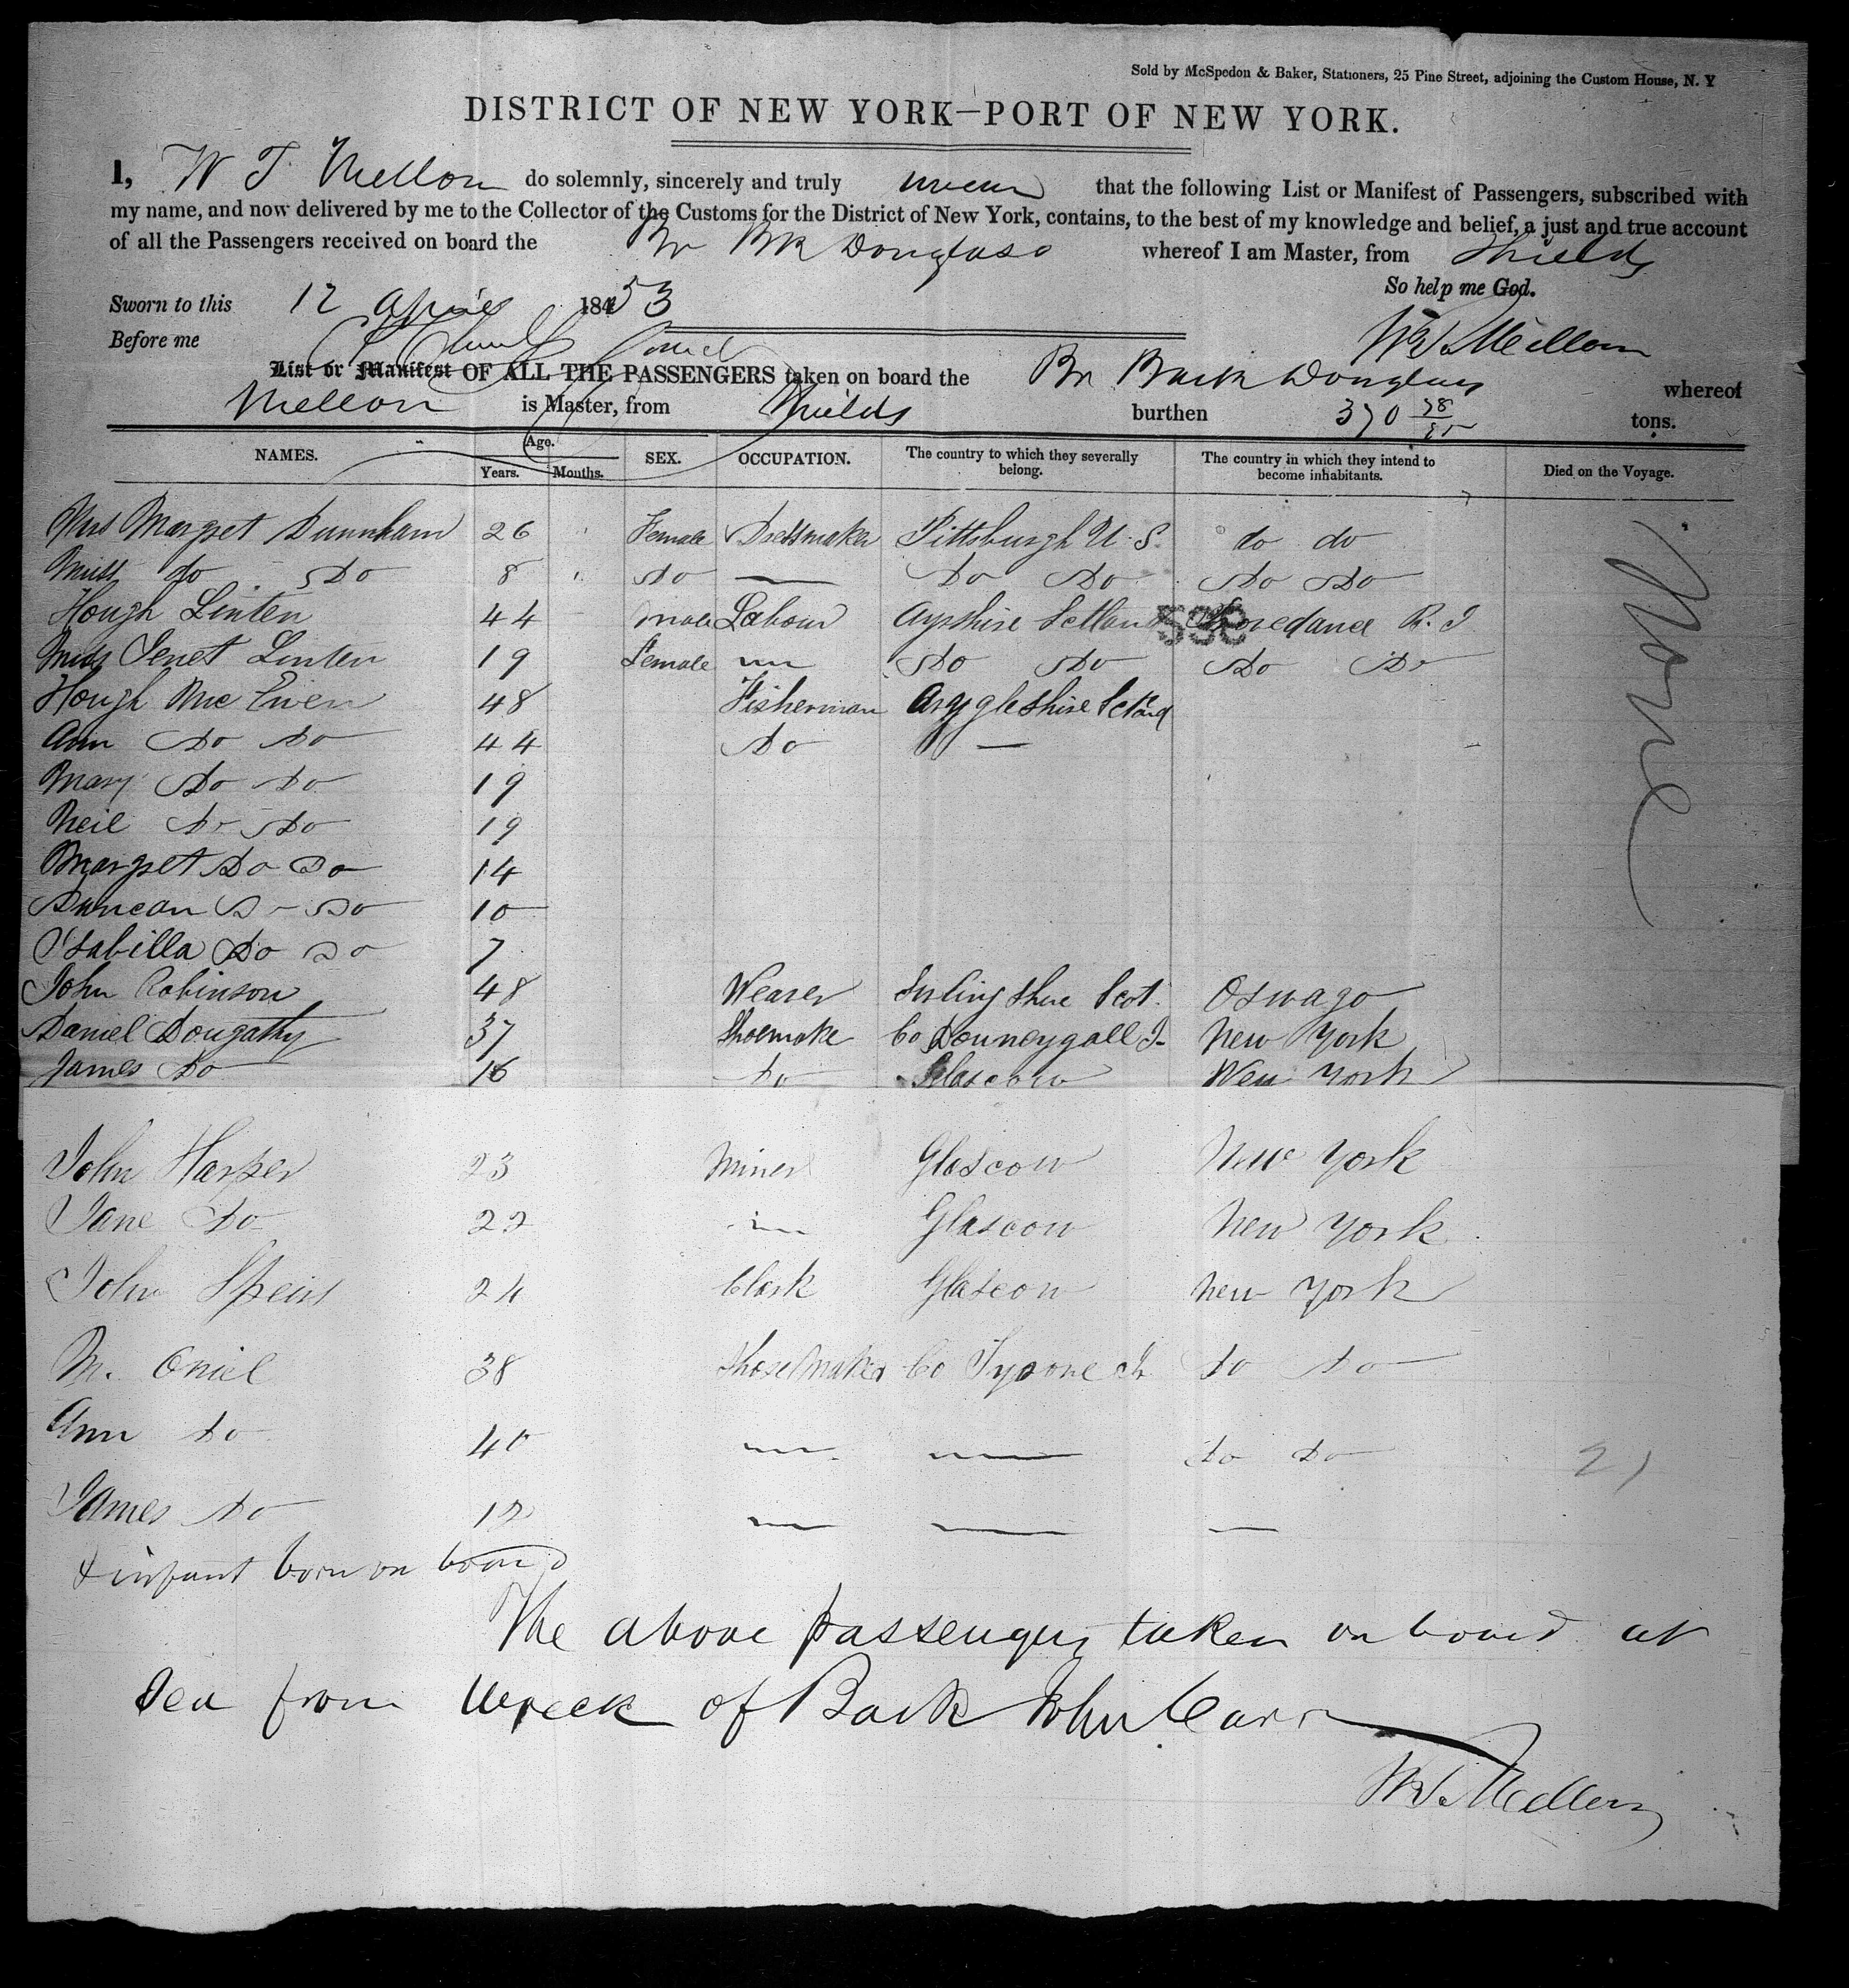 Sold by McSpedon & Baker, Stationers, 25 Pine Street, adjoining the Custom House, N. Y
DISTRICT OF NEW YORK—PORT OF NEW YORK.
I, W T Mellon do solemnly, sincerely and truly swear that the following List or Manifest of Passengers, subscribed with
my name, and now delivered by me to the Collector of the Customs for the District of New York, contains, to the best of my knowledge and belief, a just and true account
of all the Passengers received on board the Br Bk Douglass whereof I am Master, from Shields
So help me God.
Sworn to this 12 April 1853
Before me
W T Mellon
List or Manifest OF ALL THE PASSENGERS taken on board the Br Bark Douglass whereof
Mellon is Master, from Shields burthen 370 38/95 tons.
NAMES. Age. Years. Months. SEX. OCCUPATION. The country to which they severally belong. The country in which they intend to become inhabitants. Died on the Voyage.
Mrs Margret Dunnham 26 " Female Dressmaker Pittsburgh U. S. do do
Miss do Do 8 " Do — Do Do Do Do
Hough Linten 44 male Labour Ayrshire Sctland Provedance R. I
Miss Jenet Linten 19 Female — Do Do Do Do
Hough Mc Ewen 48 Fisherman Argyleshire Sctland
Ann Do Do 44 Do —
Mary Do Do 19
Neil Do Do 19
Margret Do Do 14
Duncan Do Do 10
Isabilla Do Do 7
John Robinson 48 Weaver Sirling Shire Scot. Oswago
Daniel Dougathy 37 Shoemake Co Douneygall I- New York
James Do 16 Do Glascow New York
None
John Harper 23 Miner Glascow New York
Jane Do 22 — Glascow New York
John Speirs 24 Clark Glascow New York
M. Oniel 38 Shoe Maker Co Tyrone Ir Do Do
Ann Do 40 — — Do Do
21
James Do 12 — — —
& infant born on board
The above passengers taken on board at
Sea from wreck of Bark John Carr
W T Mellon